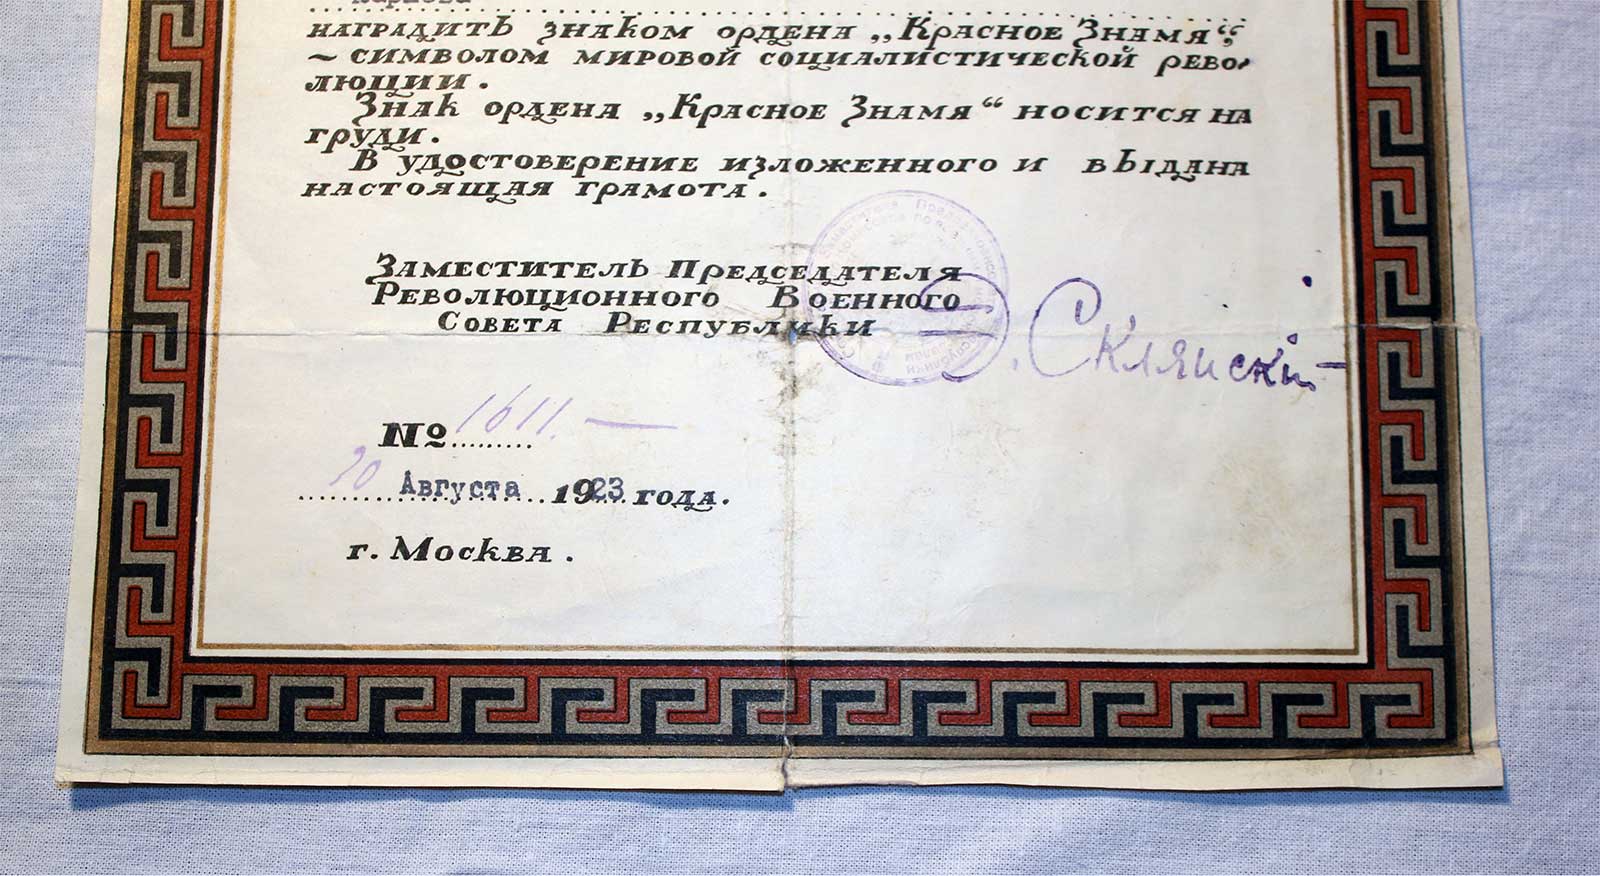 наградить знаком ордена „Красное Знамя“,
~ символом мировой социалистической рево-
люции.
Знак ордена „Красное Знамя“ носится на
груди.
В удостоверение изложенного и выдана
настоящая грамота.
Заместитель Председателя
Революционного Военного
Совета Республики
Э. Склянскій
№ 1611.—
20 Августа 1923 года.
г. Москва.